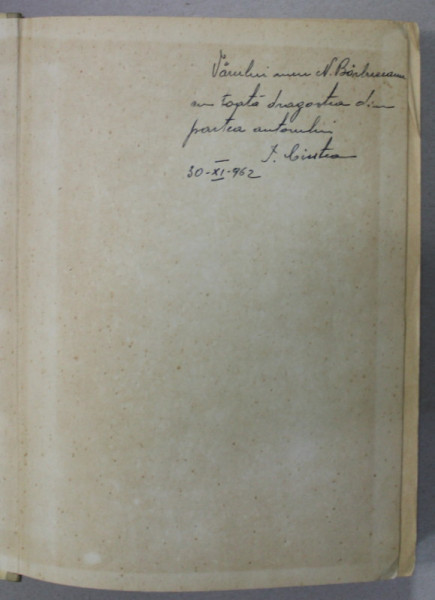 Vărului meu N. Bărbuceanu
cu toată dragostea din
partea autorului
I. Cristea
30-XI-962